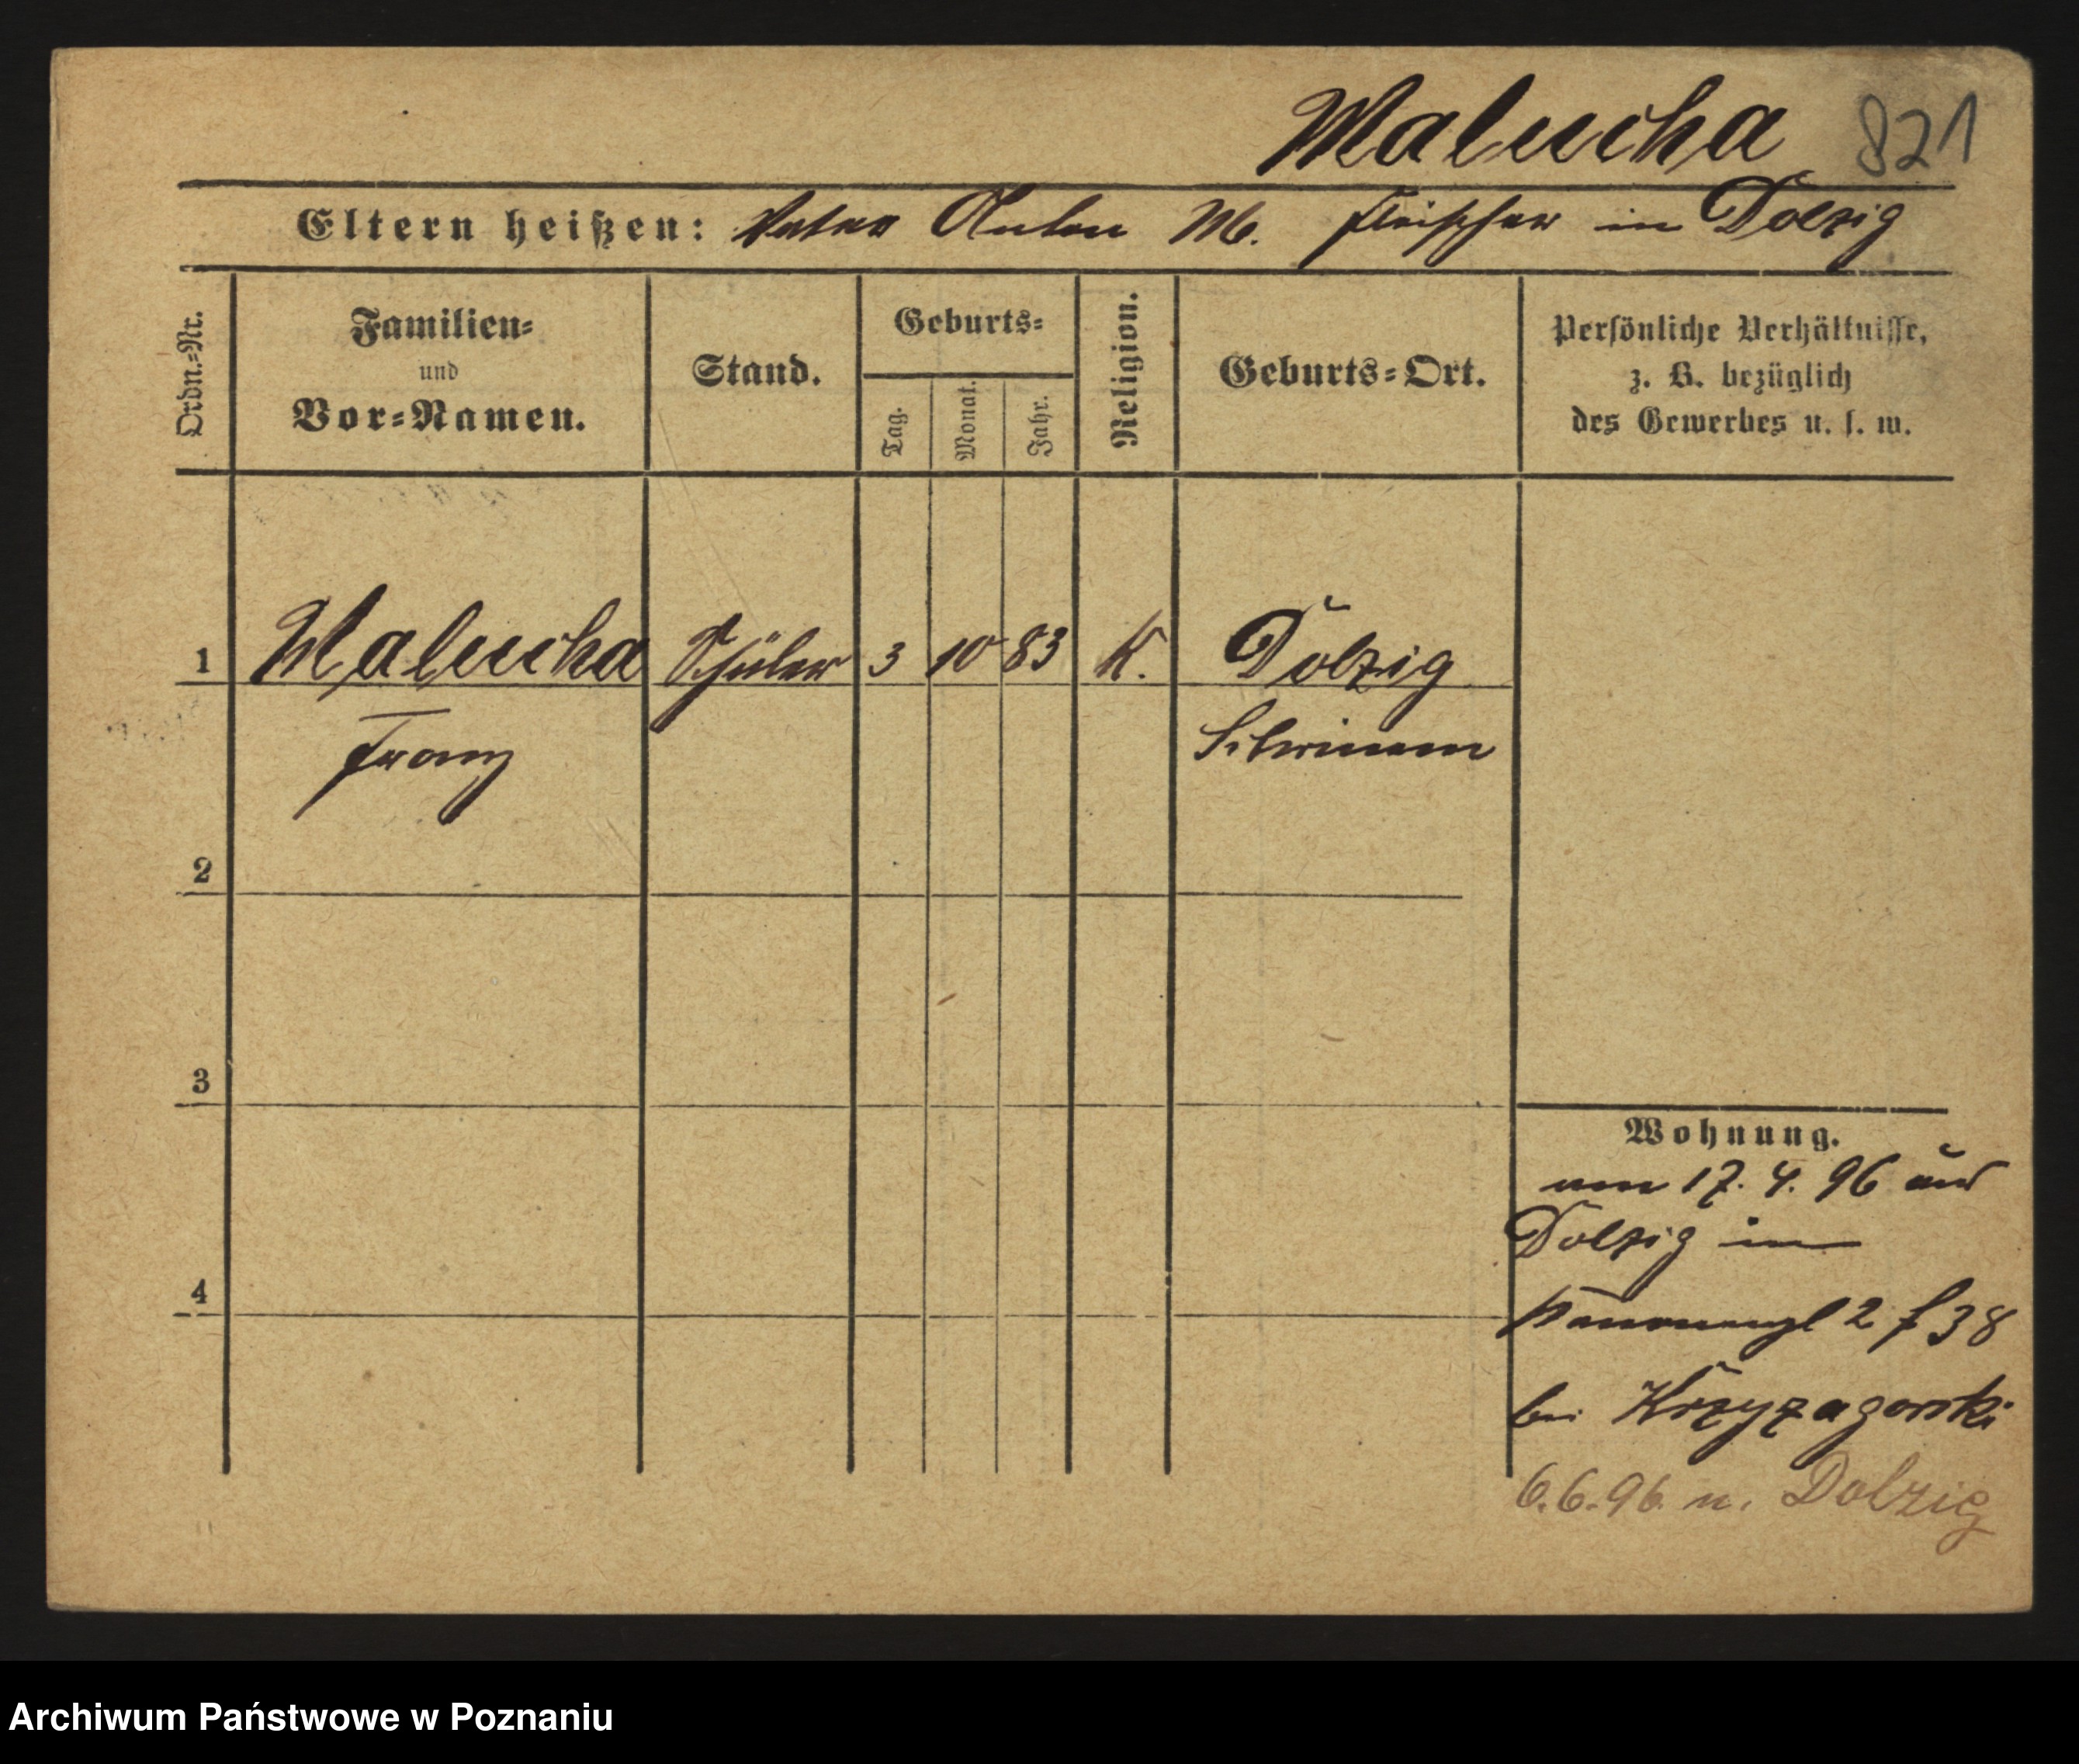 Malucha 821
Eltern heißen: Vater Anton M. Fleischer in Dolzig
Ordn.-Nr.
Familien-
und
Vor-Namen.
Stand.
Geburts-
Tag.
Monat.
Jahr.
Religion.
Geburts-Ort.
Persönliche Verhältnisse,
z. B. bezüglich
des Gewerbes u. s. w.
1 Malucha Schüler 3 10 83 K. Dolzig
Franz Schrimm
2
3
4
Wohnung.
am 17. 4. 96 aus
Dolzig in
2 f 38
bei Krzyzagorski
6.6.96. n. Dolzig
Archiwum Państwowe w Poznaniu